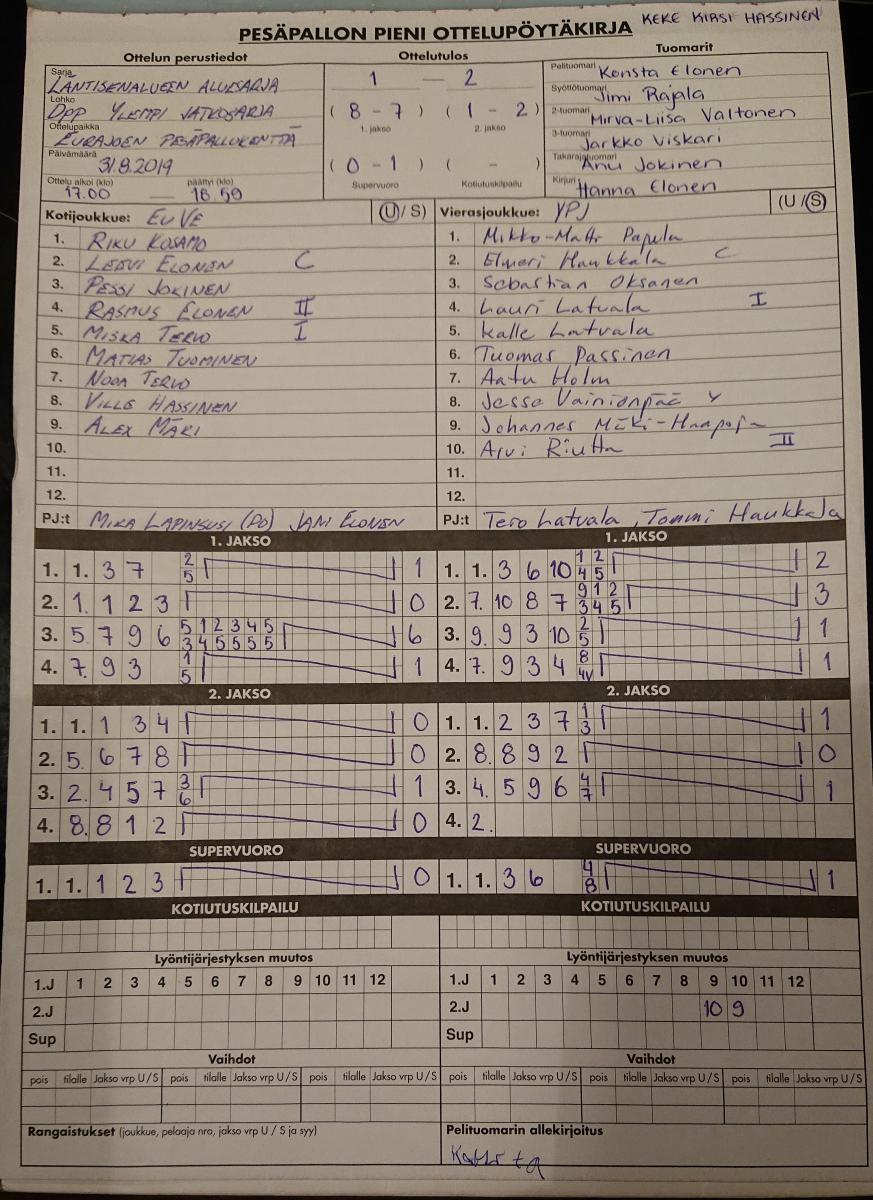 PESÄPALLON PIENI OTTELUPÖYTÄKIRJA KEKE KIRSI HASSINEN
Ottelun perustiedot Ottelutulos Tuomarit
Sarja LÄNTISENALUEEN ALUESARJA
Lohko Dpp YLEMPI JATKOSARJA
Ottelupaikka EURAJOEN PESÄPALLOKENTTÄ
Päivämäärä 31.8.2019
Ottelu alkoi (klo) päättyi (klo)
17.00 — 18.59
1 — 2
( 8 - 7 ) ( 1 - 2 )
1. jakso 2. jakso
( 0 - 1 ) ( - )
Supervuoro Kotiutuskilpailu
Pelituomari Konsta Elonen
Syöttötuomari Jimi Rajala
2-tuomari Mirva-Liisa Valtonen
3-tuomari Jarkko Viskari
Takarajatuomari Anu Jokinen
Kirjuri Hanna Elonen
Kotijoukkue: EuVe (U/S)
1. RIKU KOSAMO
2. LEEVI ELONEN C
3. PESSI JOKINEN
4. RASMUS ELONEN II
5. MISKA TERVO I
6. MATIAS TUOMINEN
7. NOOA TERVO
8. VILLE HASSINEN
9. ALEX MÄKI
10.
11.
12.
PJ:t MIKA LAPINSUSI (PO) JANI ELONEN
Vierasjoukkue: YPJ (U/S)
1. Mikko-Matti Papula
2. Elmeri Haukkala C
3. Sebastian Oksanen
4. Lauri Latvala I
5. Kalle Latvala
6. Tuomas Passinen
7. Aatu Holm
8. Jesse Vainionpää
9. Johannes Mäki-Haapoja
10. Arvi Riutta II
11.
12.
PJ:t Tero Latvala, Tommi Haukkala
1. JAKSO
1. 1. 3 7 2 5 1
2. 1. 1 2 3 0
3. 5. 7 9 6 5 1 2 3 4 5 6
3 4 5 5 5 5
4. 7. 9 3 1 5 1
1. JAKSO
1. 1. 3 6 10 1 2 2
4 5
2. 7. 10 8 7 9 1 2 3
3 4 5
3. 9. 9 3 10 2 5 1
4. 7. 9 3 4 8 4V 1
2. JAKSO
1. 1. 1 3 4 0
2. 5. 6 7 8 0
3. 2. 4 5 7 3 6 1
4. 8. 8 1 2 0
2. JAKSO
1. 1. 2 3 7 1 3 1
2. 8. 8 9 2 0
3. 4. 5 9 6 4 7 1
4. 2.
SUPERVUORO
1. 1. 1 2 3 0
SUPERVUORO
1. 1. 3 6 4 8 1
KOTIUTUSKILPAILU KOTIUTUSKILPAILU
Lyöntijärjestyksen muutos Lyöntijärjestyksen muutos
1.J 1 2 3 4 5 6 7 8 9 10 11 12
2.J
Sup
1.J 1 2 3 4 5 6 7 8 9 10 11 12
2.J 10 9
Sup
Vaihdot Vaihdot
pois tilalle Jakso vrp U/S pois tilalle Jakso vrp U/S pois tilalle Jakso vrp U/S
pois tilalle Jakso vrp U/S pois tilalle Jakso vrp U/S pois tilalle Jakso vrp U/S
Rangaistukset (joukkue, pelaaja nro, jakso vrp U / S ja syy) Pelituomarin allekirjoitus